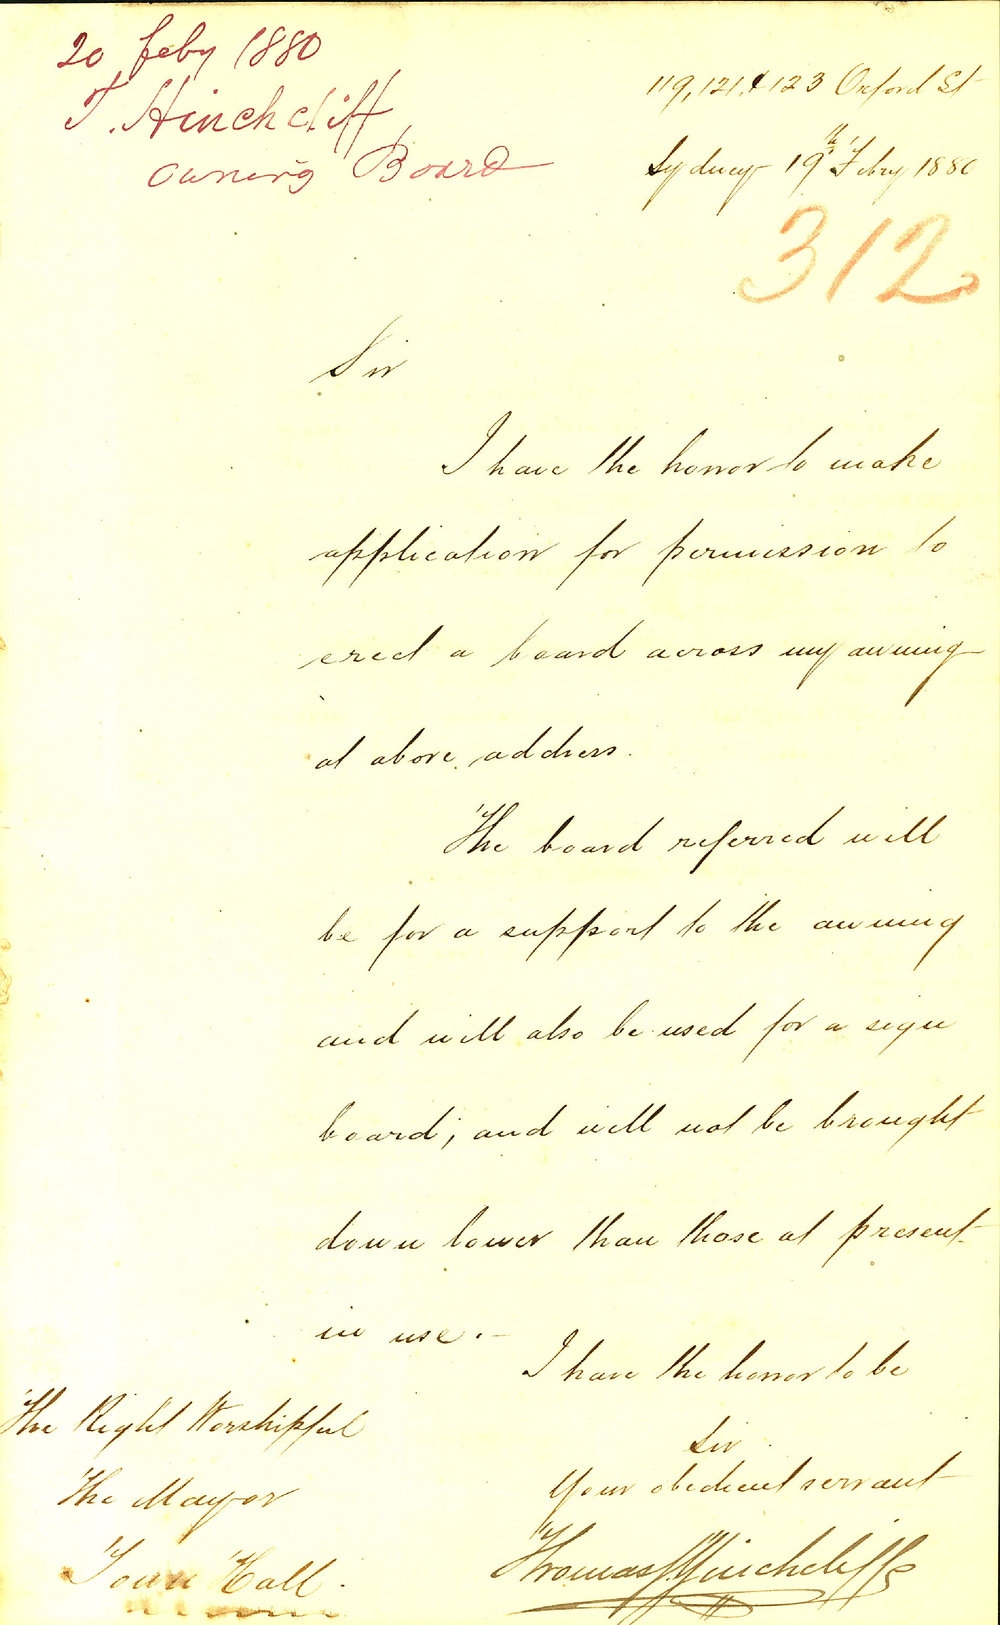 20 Feby 1880
T. Hinchcliff
awning Board
119, 121, & 123 Oxford St
Sydney 19th Febry 1880
312
Sir
I have the honor to make
application for permission to
erect a board across my awning
at above address.
The board referred will
be for a support to the awning
and will also be used for a sign
board; and will not be brought
down lower than those at present
in use.
I have the honor to be
Sir
Your obedient servant
Thomas Hinchcliffe
The Right Worshipful
The Mayor
Town Hall.